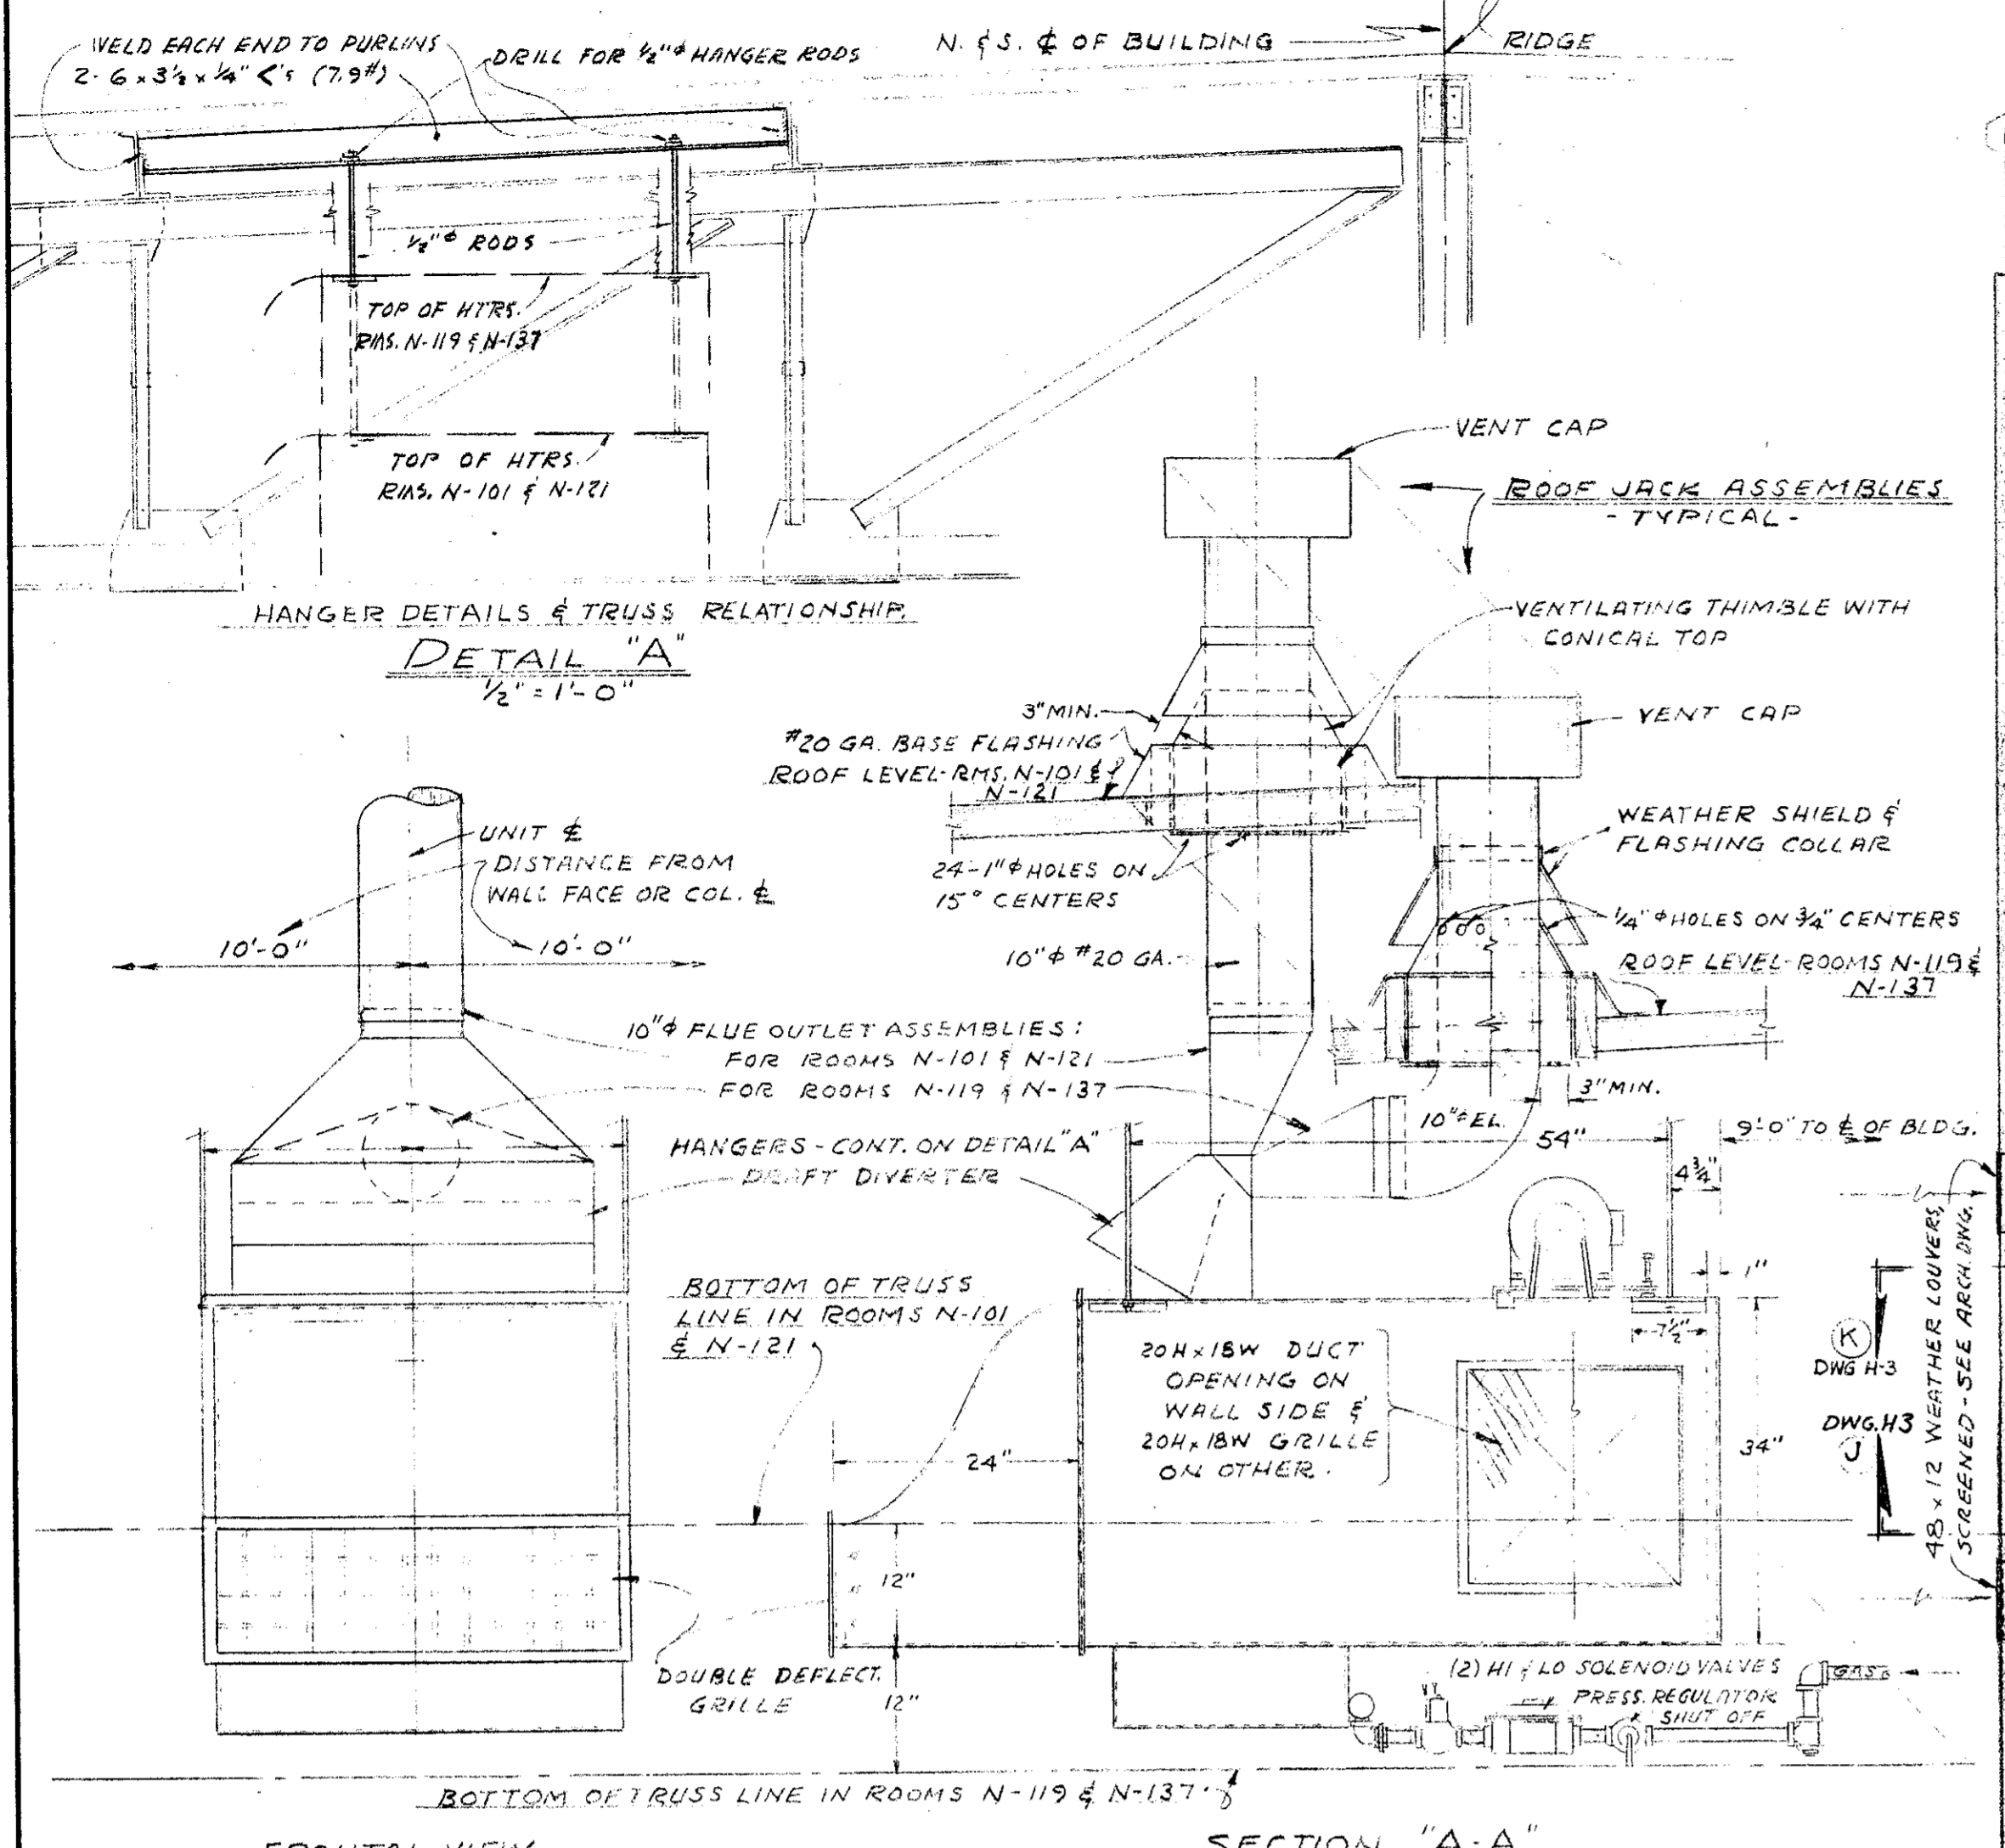 WELD EACH END TO PURLINS
2- 6 x 3½ x ¼" <'s (7.9#)
DRILL FOR ½"ϕ HANGER RODS
N. & S. ℄ OF BUILDING
RIDGE
½"ϕ RODS
TOP OF HTRS.
RMS. N-119 & N-137
TOP OF HTRS.
RMS. N-101 & N-121
HANGER DETAILS & TRUSS RELATIONSHIP.
DETAIL "A"
½" = 1'-0"
VENT CAP
ROOF JACK ASSEMBLIES
- TYPICAL -
VENTILATING THIMBLE WITH
CONICAL TOP
3" MIN.
#20 GA. BASE FLASHING
ROOF LEVEL-RMS. N-101 &
N-121
VENT CAP
WEATHER SHIELD &
FLASHING COLLAR
24-1"ϕ HOLES ON
15° CENTERS
¼"ϕ HOLES ON ¾" CENTERS
10"ϕ #20 GA.
ROOF LEVEL-ROOMS N-119 &
N-137
UNIT ℄
DISTANCE FROM
WALL FACE OR COL. ℄
10'-0"
10'-0"
10"ϕ FLUE OUTLET ASSEMBLIES:
FOR ROOMS N-101 & N-121
FOR ROOMS N-119 & N-137
3" MIN.
10"ϕ EL.
HANGERS - CONT. ON DETAIL "A"
DRAFT DIVERTER
54"
9'-0" TO ℄ OF BLDG.
4¾"
1"
7½"
BOTTOM OF TRUSS
LINE IN ROOMS N-101
& N-121
20H x 18W DUCT
OPENING ON
WALL SIDE &
20H x 18W GRILLE
ON OTHER.
K
DWG H-3
DWG.H3
J
34"
48 x 12 WEATHER LOUVERS,
SCREENED - SEE ARCH. DWG.
24"
12"
12"
DOUBLE DEFLECT.
GRILLE
(2) HI & LO SOLENOID VALVES
PRESS. REGULATOR
SHUT OFF
GAS
BOTTOM OF TRUSS LINE IN ROOMS N-119 & N-137.
FRONTAL VIEW
SECTION "A-A"